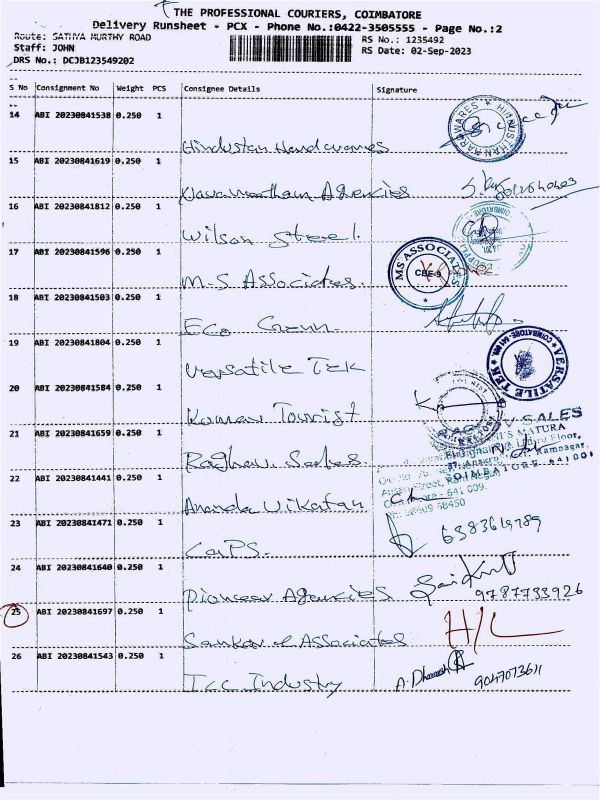 THE PROFESSIONAL COURIERS, COIMBATORE
Delivery Runsheet - PCX - Phone No.:0422-3505555 - Page No.:2
Route: SATHYA MURTHY ROAD
RS No.: 1235492
Staff: JOHN
RS Date: 02-Sep-2023
DRS No.: DCJB123549202
S No Consignment No Weight PCS Consignee Details Signature
14 ABI 20230841538 0.250 1
Hindustan Hardwares
15 ABI 20230841619 0.250 1
Navamaetham Agencies
16 ABI 20230841812 0.250 1
Wilson Steel.
17 ABI 20230841596 0.250 1
MS ASSOCIATES
CBE-9
M.S Associates.
18 ABI 20230841503 0.250 1
Eco
19 ABI 20230841804 0.250 1
VERSATILE TEK
COIMBATORE-641 009.
Versatile TEK
20 ABI 20230841584 0.250 1
Kumar Tourist
21 ABI 20230841659 0.250 1
V SALES
Floor,
Ramnagar,
COIMBATORE-641001
Raghav. Sales
22 ABI 20230841441 0.250 1
641 009.
Ananda Vikatan
23 ABI 20230841471 0.250 1
6383619789
CaPS.
24 ABI 20230841640 0.250 1
Pioneer Agencies
9787733926
25 ABI 20230841697 0.250 1
H/L
Sankar & Associates
26 ABI 20230841543 0.250 1
Icc Industry
9047073611